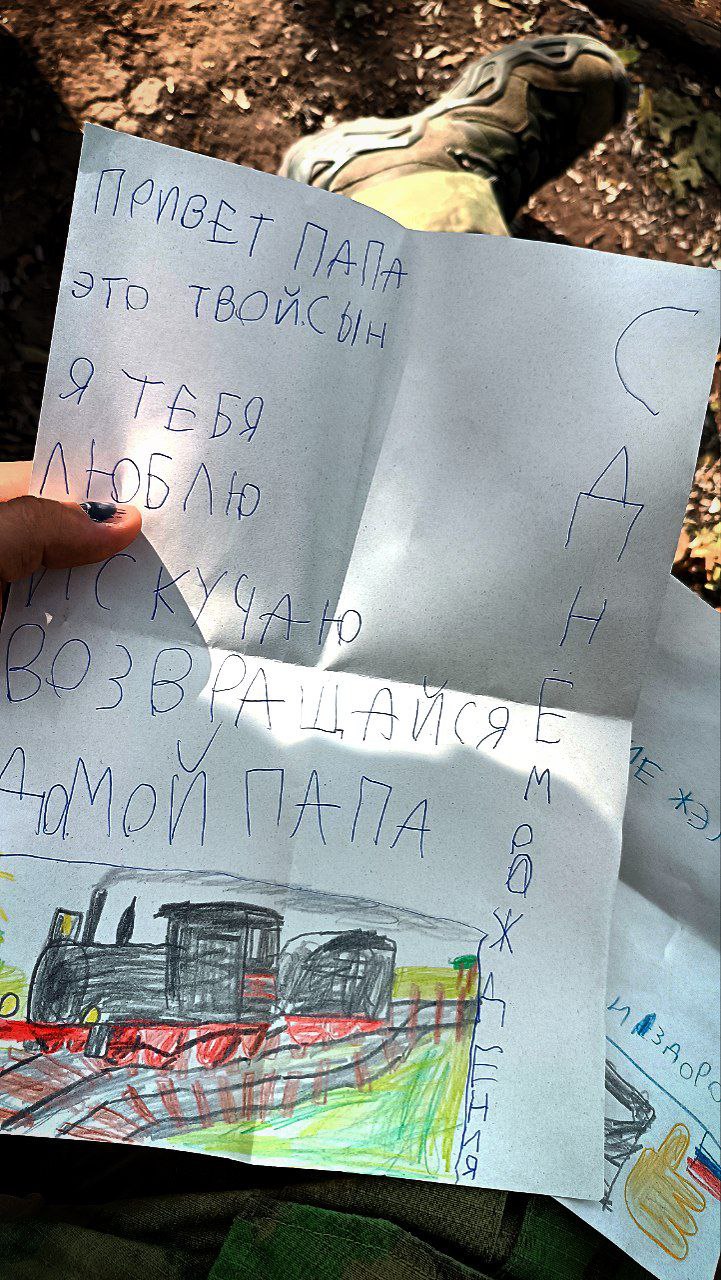 ПРИВЕТ ПАПА
ЭТО ТВОЙ СЫН
Я ТЕБЯ
ЛЮБЛЮ
И СКУЧАЮ
ВОЗВРАЩАЙСЯ
ДОМОЙ ПАПА
С ДНЁМ РОЖДЕНИЯ